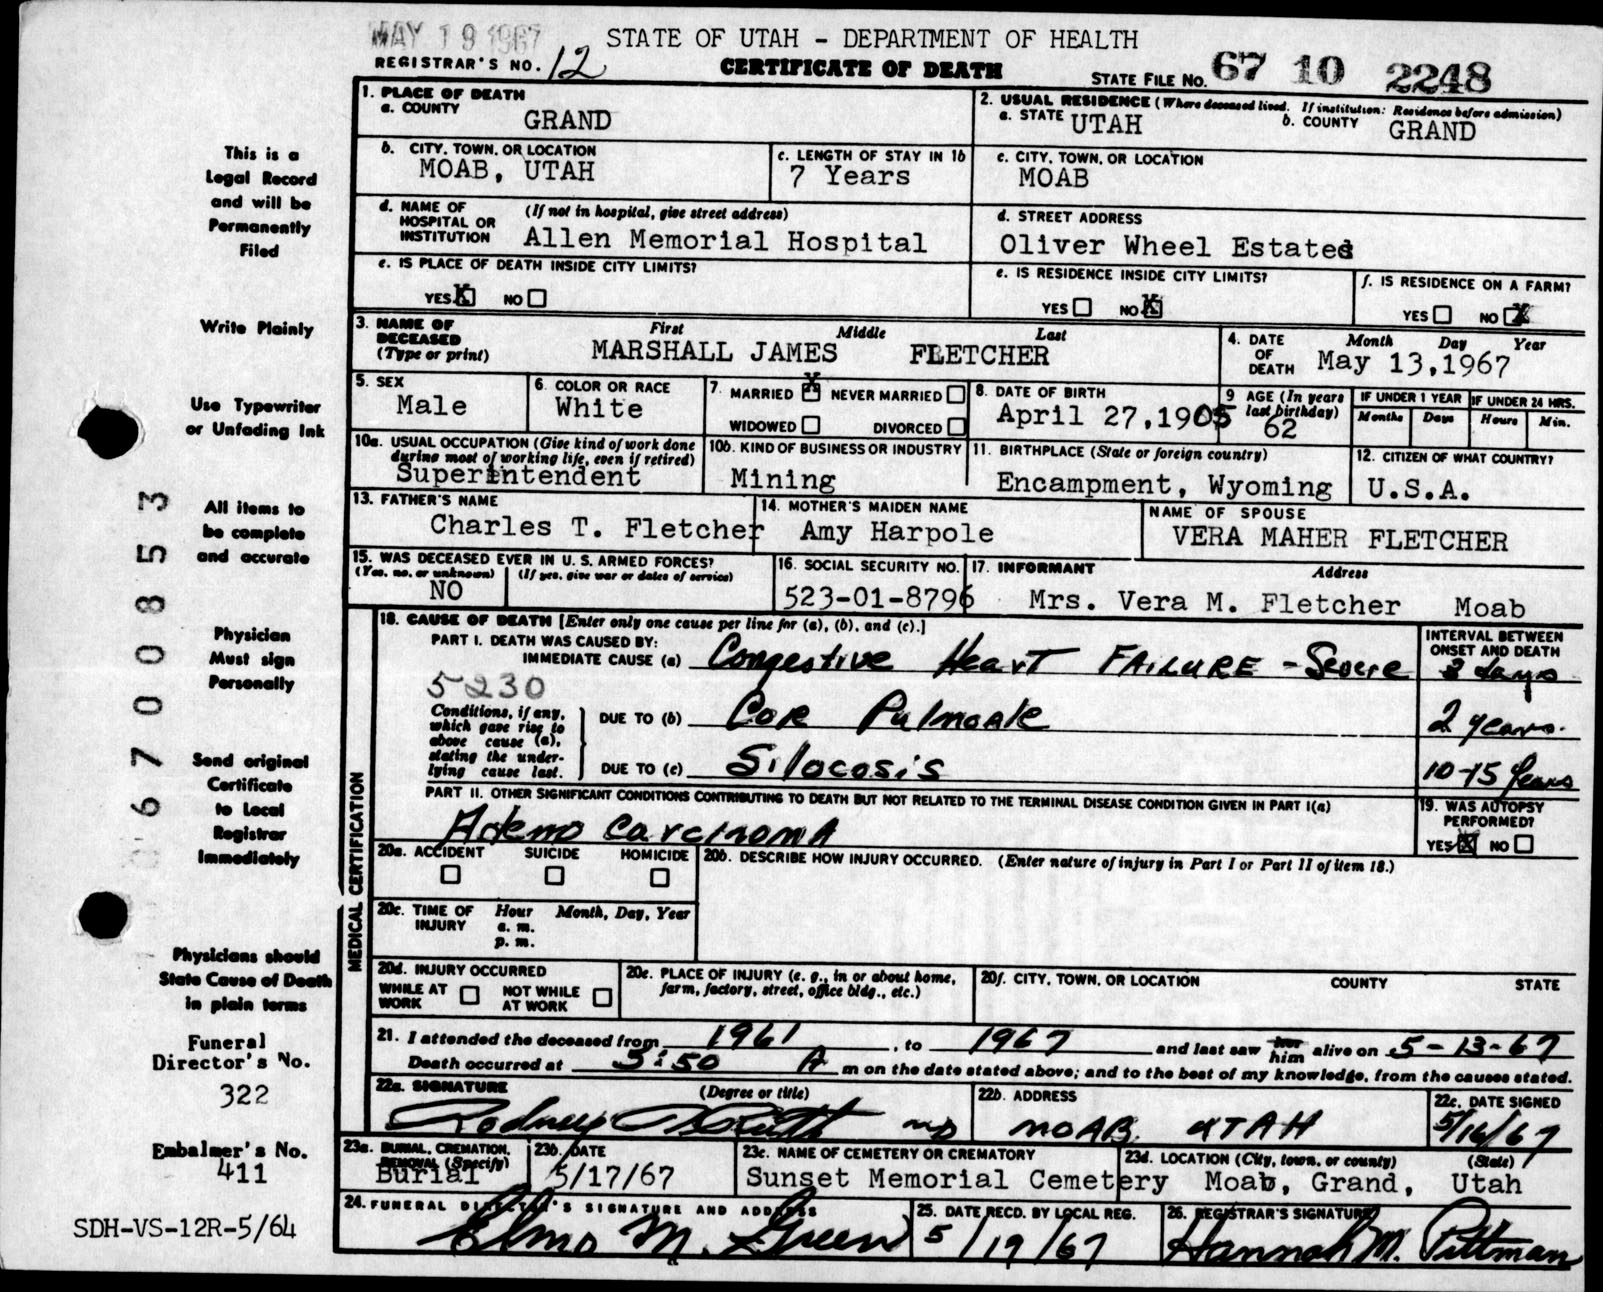 MAY 19 1967
STATE OF UTAH - DEPARTMENT OF HEALTH
REGISTRAR'S NO. 12
CERTIFICATE OF DEATH
STATE FILE NO. 67 10 2248
This is a
Legal Record
and will be
Permanently
Filed
Write Plainly
Use Typewriter
or Unfading Ink
All items to
be complete
and accurate
Physician
Must sign
Personally
Send original
Certificate
to Local
Registrar
Immediately
Physicians should
State Cause of Death
in plain terms
Funeral
Director's No.
322
Embalmer's No.
411
SDH-VS-12R-5/64
6700853
1. PLACE OF DEATH
a. COUNTY
GRAND
2. USUAL RESIDENCE (Where deceased lived. If institution: Residence before admission)
a. STATE UTAH
b. COUNTY GRAND
b. CITY, TOWN, OR LOCATION
MOAB, UTAH
c. LENGTH OF STAY IN 1b
7 Years
c. CITY, TOWN, OR LOCATION
MOAB
d. NAME OF HOSPITAL OR INSTITUTION
(If not in hospital, give street address)
Allen Memorial Hospital
d. STREET ADDRESS
Oliver Wheel Estates
e. IS PLACE OF DEATH INSIDE CITY LIMITS?
YES X NO
e. IS RESIDENCE INSIDE CITY LIMITS?
YES NO X
f. IS RESIDENCE ON A FARM?
YES NO X
3. NAME OF DECEASED
(Type or print)
First Middle Last
MARSHALL JAMES FLETCHER
4. DATE OF DEATH
Month Day Year
May 13,1967
5. SEX
Male
6. COLOR OR RACE
White
7. MARRIED X NEVER MARRIED
WIDOWED DIVORCED
8. DATE OF BIRTH
April 27,1905
9 AGE (In years last birthday)
62
IF UNDER 1 YEAR
Months Days
IF UNDER 24 HRS.
Hours Min.
10a. USUAL OCCUPATION (Give kind of work done during most of working life, even if retired)
Superintendent
10b. KIND OF BUSINESS OR INDUSTRY
Mining
11. BIRTHPLACE (State or foreign country)
Encampment, Wyoming
12. CITIZEN OF WHAT COUNTRY?
U.S.A.
13. FATHER'S NAME
Charles T. Fletcher
14. MOTHER'S MAIDEN NAME
Amy Harpole
NAME OF SPOUSE
VERA MAHER FLETCHER
15. WAS DECEASED EVER IN U. S. ARMED FORCES?
(Yes, no, or unknown) (If yes, give war or dates of service)
NO
16. SOCIAL SECURITY NO.
523-01-8796
17. INFORMANT Address
Mrs. Vera M. Fletcher Moab
MEDICAL CERTIFICATION
18. CAUSE OF DEATH [Enter only one cause per line for (a), (b), and (c).]
INTERVAL BETWEEN ONSET AND DEATH
PART I. DEATH WAS CAUSED BY:
IMMEDIATE CAUSE (a) Congestive Heart FAILURE - Severe 3 days
5230
Conditions, if any, which gave rise to above cause (a), stating the underlying cause last.
DUE TO (b) Cor Pulmoale 2 years.
DUE TO (c) Silocosis 10-15 years
PART II. OTHER SIGNIFICANT CONDITIONS CONTRIBUTING TO DEATH BUT NOT RELATED TO THE TERMINAL DISEASE CONDITION GIVEN IN PART I(a)
Adeno carcinoma
19. WAS AUTOPSY PERFORMED?
YES X NO
20a. ACCIDENT SUICIDE HOMICIDE
20b. DESCRIBE HOW INJURY OCCURRED. (Enter nature of injury in Part I or Part II of item 18.)
20c. TIME OF INJURY Hour Month, Day, Year
a. m.
p. m.
20d. INJURY OCCURRED
WHILE AT WORK NOT WHILE AT WORK
20e. PLACE OF INJURY (e. g., in or about home, farm, factory, street, office bldg., etc.)
20f. CITY, TOWN, OR LOCATION COUNTY STATE
21. I attended the deceased from 1961, to 1967 and last saw her him alive on 5-13-67
Death occurred at 3:50 A m on the date stated above; and to the best of my knowledge, from the causes stated.
22a. SIGNATURE (Degree or title)
Rodney MD
22b. ADDRESS
MOAB, UTAH
22c. DATE SIGNED
5/16/67
23a. BURIAL, CREMATION, REMOVAL (Specify)
Burial
23b. DATE
5/17/67
23c. NAME OF CEMETERY OR CREMATORY
Sunset Memorial Cemetery
23d. LOCATION (City, town, or county) (State)
Moab, Grand, Utah
24. FUNERAL DIRECTOR'S SIGNATURE AND ADDRESS
Elmo M. Green
25. DATE RECD. BY LOCAL REG.
5/19/67
26. REGISTRAR'S SIGNATURE
Hannah M. Pittman